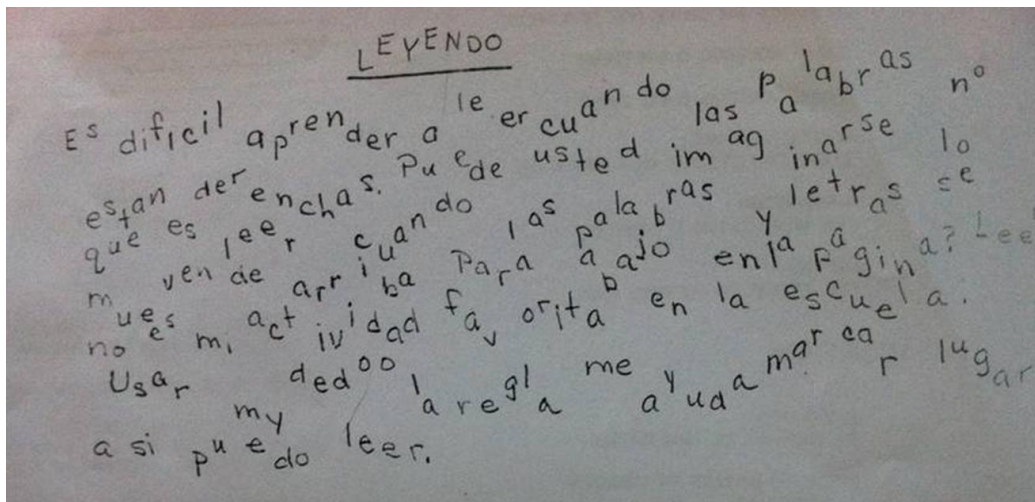 LEYENDO
Es dificil aprender a leer cuando las palabras no
estan derenchas. Puede usted imaginarse lo
que es leer cuando las palabras y letras se
mueven de arriba para abajo en la pagina? Lee
no es mi actividad favorita en la escuela.
Usar my dedo o la regla me ayuda a marcar lugar
a si puedo leer.